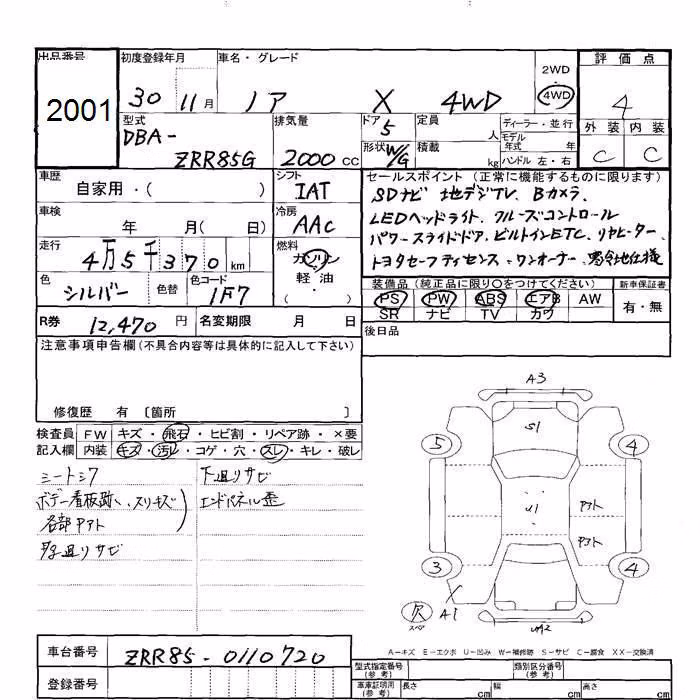 出品番号 初度登録年月 車名・グレード 2WD・4WD 評価点
2001 30 11月 ノア X 4WD 4
型式 排気量 ドア 定員 ディーラー・並行 外装 内装
DBA- 5 人 モデル年式 年
ZRR85G 2000 cc 形状 W/G 積載 kg ハンドル 左・右 C C
車歴 自家用・( ) シフト IAT セールスポイント (正常に機能するものに限ります)
車検 年 月( 日) 冷房 AAC SDナビ 地デジTV、Bカメラ、
LEDヘッドライト、クルーズコントロール
走行 4万5千370km 燃料 ガソリン・軽油 パワースライドドア、ビルトインETC、リヤヒーター、
トヨタセーフティセンス、ワンオーナー、寒冷地仕様
色 シルバー 色替 色コード 1F7 装備品 (純正品に限り○をつけてください) 新車保証書
PS PW ABS エアB AW 有・無
SR ナビ TV カワ
R券 12,470 円 名変期限 月 日 後日品
注意事項申告欄 (不具合内容等は具体的に記入して下さい)
修復歴 有 〔箇所 〕
検査員記入欄 FW キズ・飛石・ヒビ割・リペア跡・×要
内装 キズ・汚レ・コゲ・穴・スレ・キレ・破レ
シートシワ 下廻リサビ
ボデー看板跡、スリキズ エンドパネル歪
各部アアト
A3
S1
5 4
U1 アアト
アアト
3 4
欠 スペア A1
UA2
A-キズ E-エクボ U-凹み W-補修跡 S-サビ C-腐食 XX-交換済
車台番号 ZRR85-0110720 型式指定番号 (参考) 類別区分番号 (参考)
登録番号 車庫証明用 (参考) 長さ cm 幅 cm 高さ cm